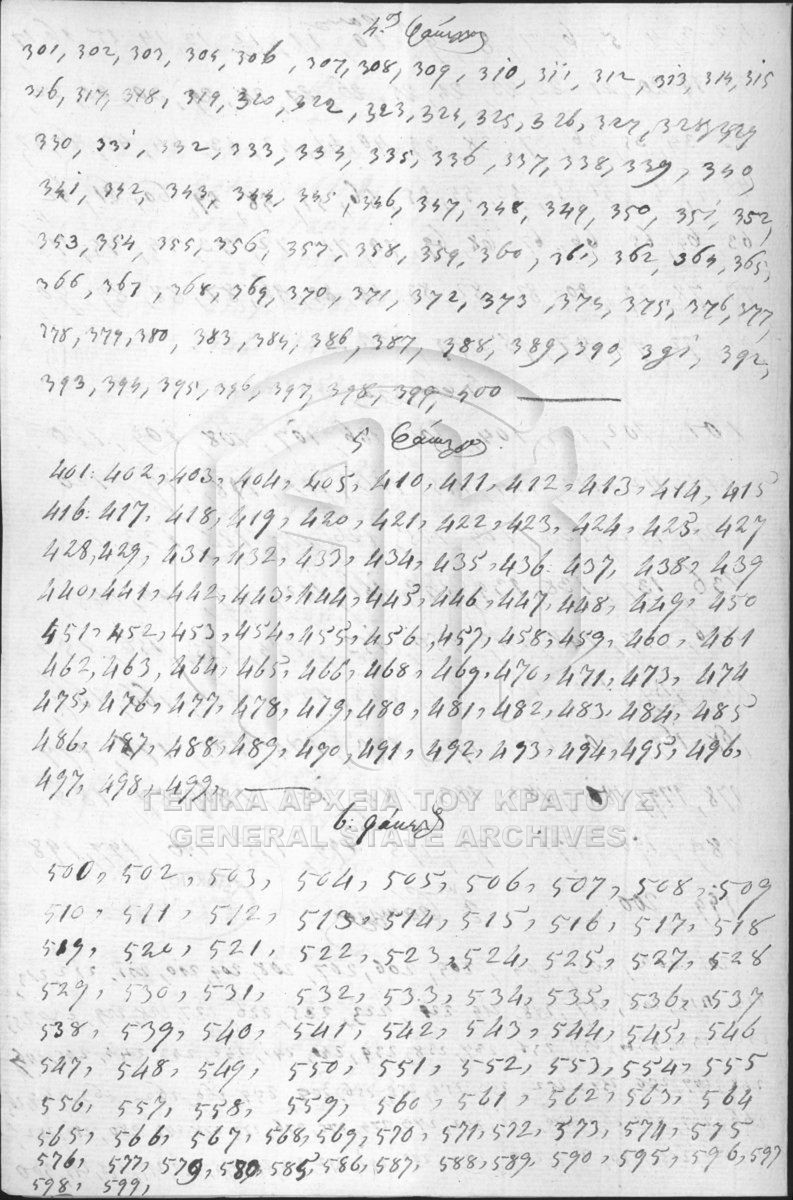 4.ος Φάκελλος
301, 302, 303, 304, 306, 307, 308, 309, 310, 311, 312, 313, 314, 315
316, 317, 318, 319, 320, 322, 323, 324, 325, 326, 327, 328, 329
330, 331, 332, 333, 334, 335, 336, 337, 338, 339, 340,
341, 342, 343, 344, 345, 346, 347, 348, 349, 350, 351, 352,
353, 354, 355, 356, 357, 358, 359, 360, 361, 362, 364, 365,
366, 367, 368, 369, 370, 371, 372, 373, 374, 375, 376, 377,
378, 379, 380, 383, 384, 386, 387, 388, 389, 390, 391, 392,
393, 394, 395, 396, 397, 398, 399, 400
5 Φάκελος
401. 402, 403, 404, 405, 410, 411, 412, 413, 414, 415
416. 417, 418, 419, 420, 421, 422, 423, 424, 425, 427
428, 429, 431, 432, 433, 434, 435, 436. 437, 438, 439
440, 441, 442, 443, 444, 445, 446, 447, 448, 449, 450
451, 452, 453, 454, 455, 456, 457, 458, 459, 460, 461
462, 463, 464, 465, 466, 468, 469, 470, 471, 473, 474
475, 476, 477, 478, 479, 480, 481, 482, 483, 484, 485
486, 487, 488, 489, 490, 491, 492, 493, 494, 495, 496,
497, 498, 499,
ΓΕΝΙΚΑ ΑΡΧΕΙΑ ΤΟΥ ΚΡΑΤΟΥΣ
GENERAL STATE ARCHIVES
6: φάκελος
500, 502, 503, 504, 505, 506, 507, 508, 509
510, 511, 512, 513, 514, 515, 516, 517, 518
519, 520, 521, 522, 523, 524, 525, 527, 528
529, 530, 531, 532, 533, 534, 535, 536, 537
538, 539, 540, 541, 542, 543, 544, 545, 546
547, 548, 549, 550, 551, 552, 553, 554, 555
556, 557, 558, 559, 560, 561, 562, 563, 564
565, 566, 567, 568, 569, 570, 571, 572, 573, 574, 575
576, 577, 579, 580, 585, 586, 587, 588, 589, 590, 595, 596, 597
598, 599,